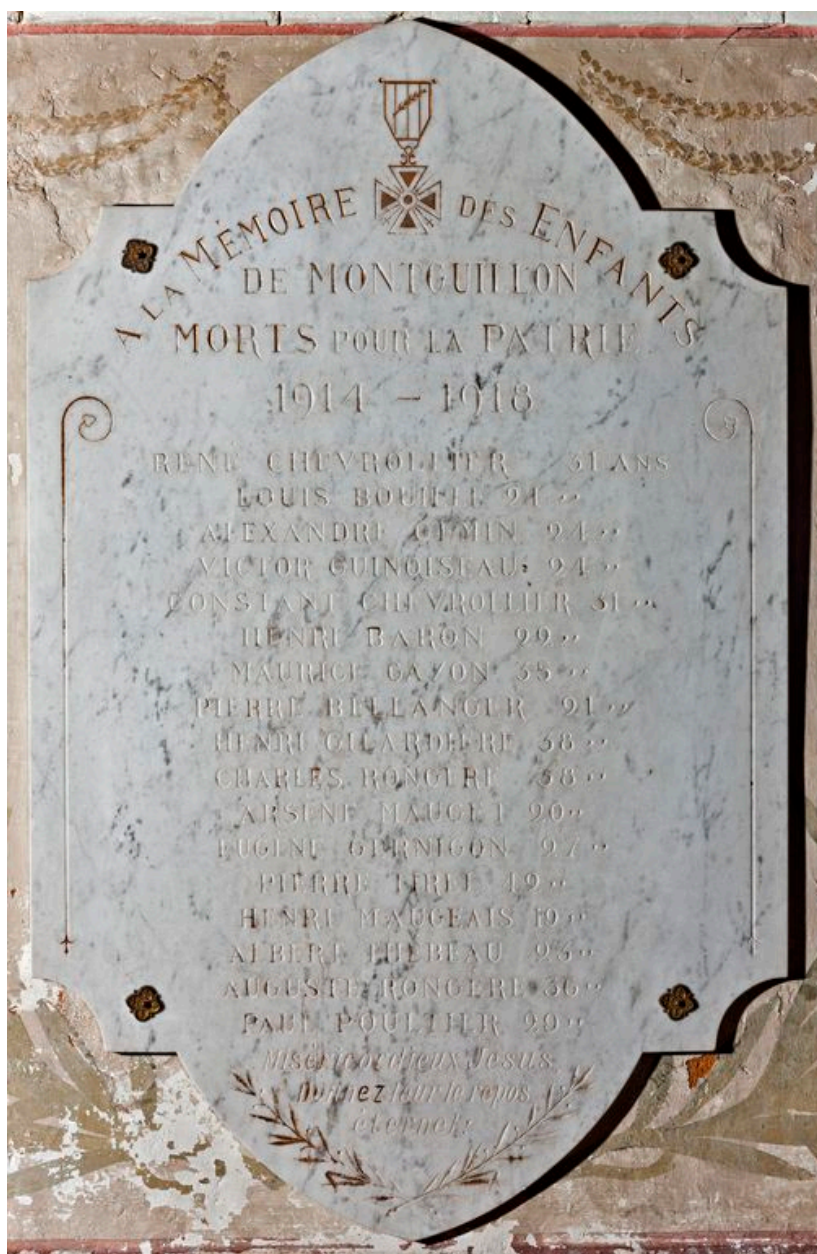 A LA MÉMOIRE DES ENFANTS
DE MONTGUILLON
MORTS POUR LA PATRIE
1914 - 1918
RENÉ CHEVROLLIER 31 ANS
LOUIS 21 "
ALEXANDRE 24 "
VICTOR GUINOISEAU 24 "
CONSTANT CHEVROLLIER 31 "
HENRI BARON 22 "
MAURICE GAYON 35 "
PIERRE BELLANGER 21 "
HENRI GILARDIÈRE 38 "
CHARLES RONGÈRE 38 "
ARSÈNE MAUGET 20 "
EUGÈNE GERNIGON 27 "
PIERRE
HENRI MAUGEAIS 19 "
ALBERT THÉBEAU 23 "
AUGUSTE RONGÈRE 36 "
PAUL POULTIER 20 "
Miséricordieux Jésus
Donnez leur le repos
éternel.